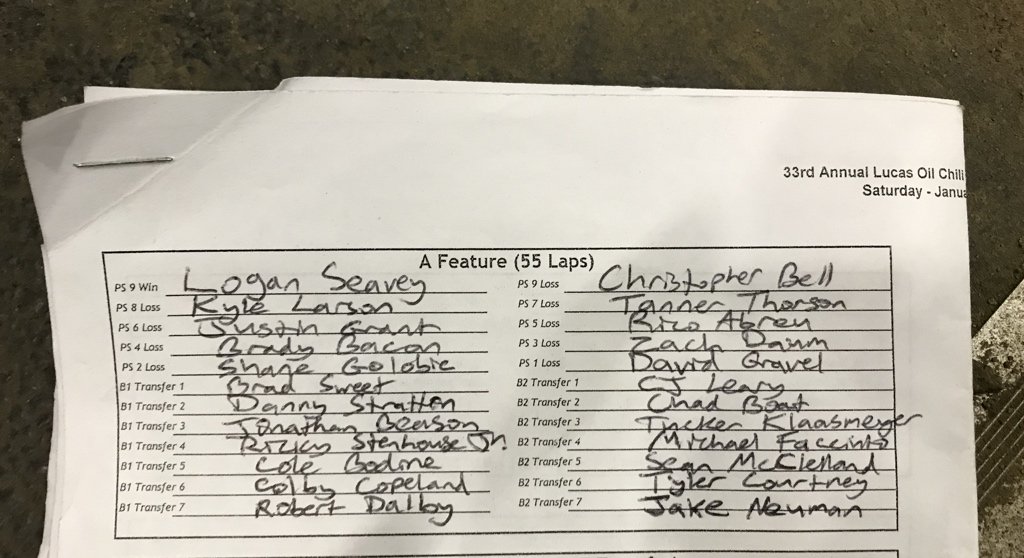 33rd Annual Lucas Oil Chili
Saturday - Janua
A Feature (55 Laps)
PS 9 Win Logan Seavey PS 9 Loss Christopher Bell
PS 8 Loss Kyle Larson PS 7 Loss Tanner Thorson
PS 6 Loss Justin Grant PS 5 Loss Rico Abreu
PS 4 Loss Brady Bacon PS 3 Loss Zach Daum
PS 2 Loss Shane Golobic PS 1 Loss David Gravel
B1 Transfer 1 Brad Sweet B2 Transfer 1 CJ Leary
B1 Transfer 2 Danny Stratton B2 Transfer 2 Chad Boat
B1 Transfer 3 Jonathan Beason B2 Transfer 3 Tucker Klaasmeyer
B1 Transfer 4 Ricky Stenhouse Jr. B2 Transfer 4 Michael Faccinto
B1 Transfer 5 Cole Bodine B2 Transfer 5 Sean McClelland
B1 Transfer 6 Colby Copeland B2 Transfer 6 Tyler Courtney
B1 Transfer 7 Robert Dalby B2 Transfer 7 Jake Neuman